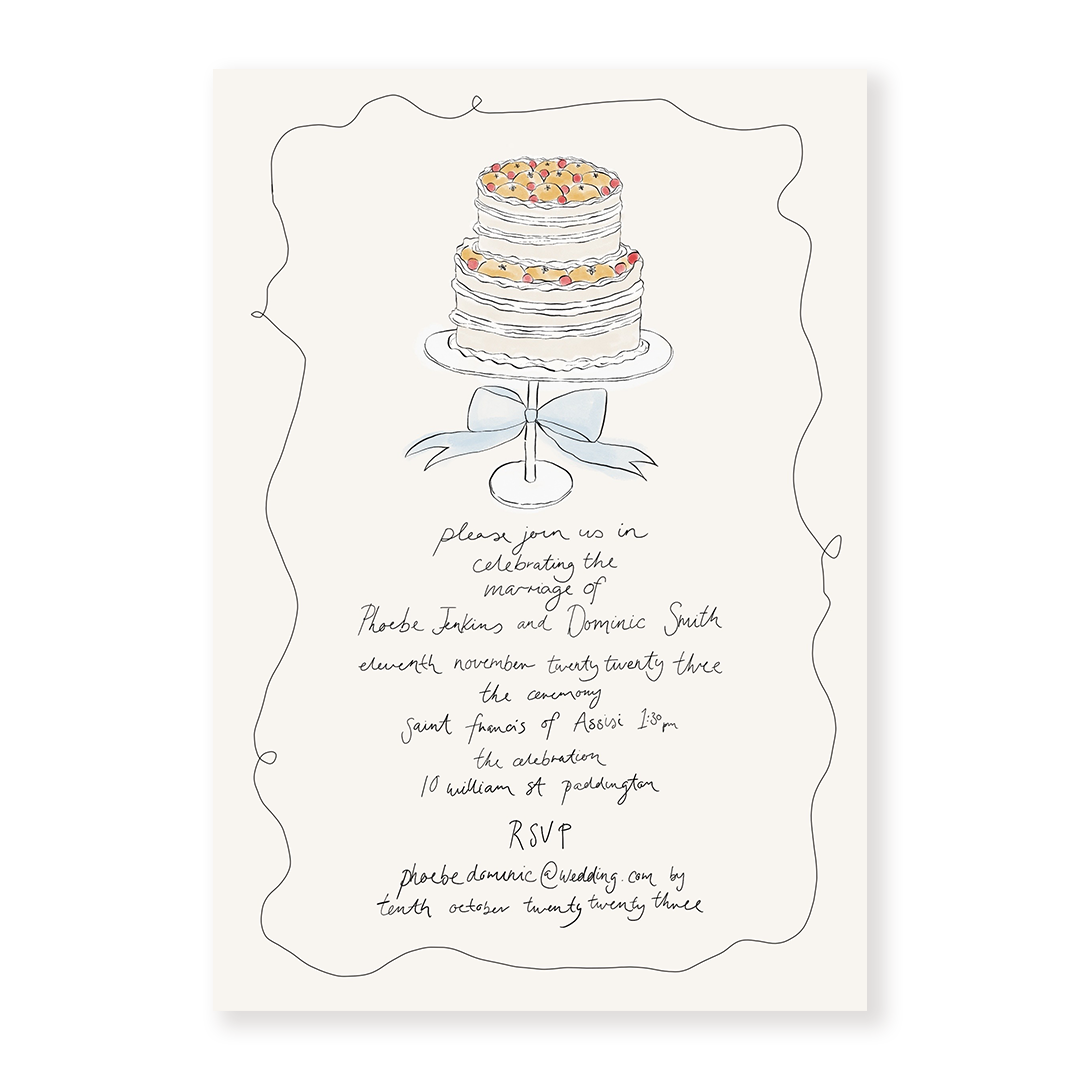 please join us in
celebrating the
marriage of
Phoebe Jenkins and Dominic Smith
eleventh november twenty twenty three
the ceremony
saint francis of Assisi 1:30pm
the celebration
10 william st paddington
RSVP
phoebedominic@wedding.com by
tenth october twenty twenty three